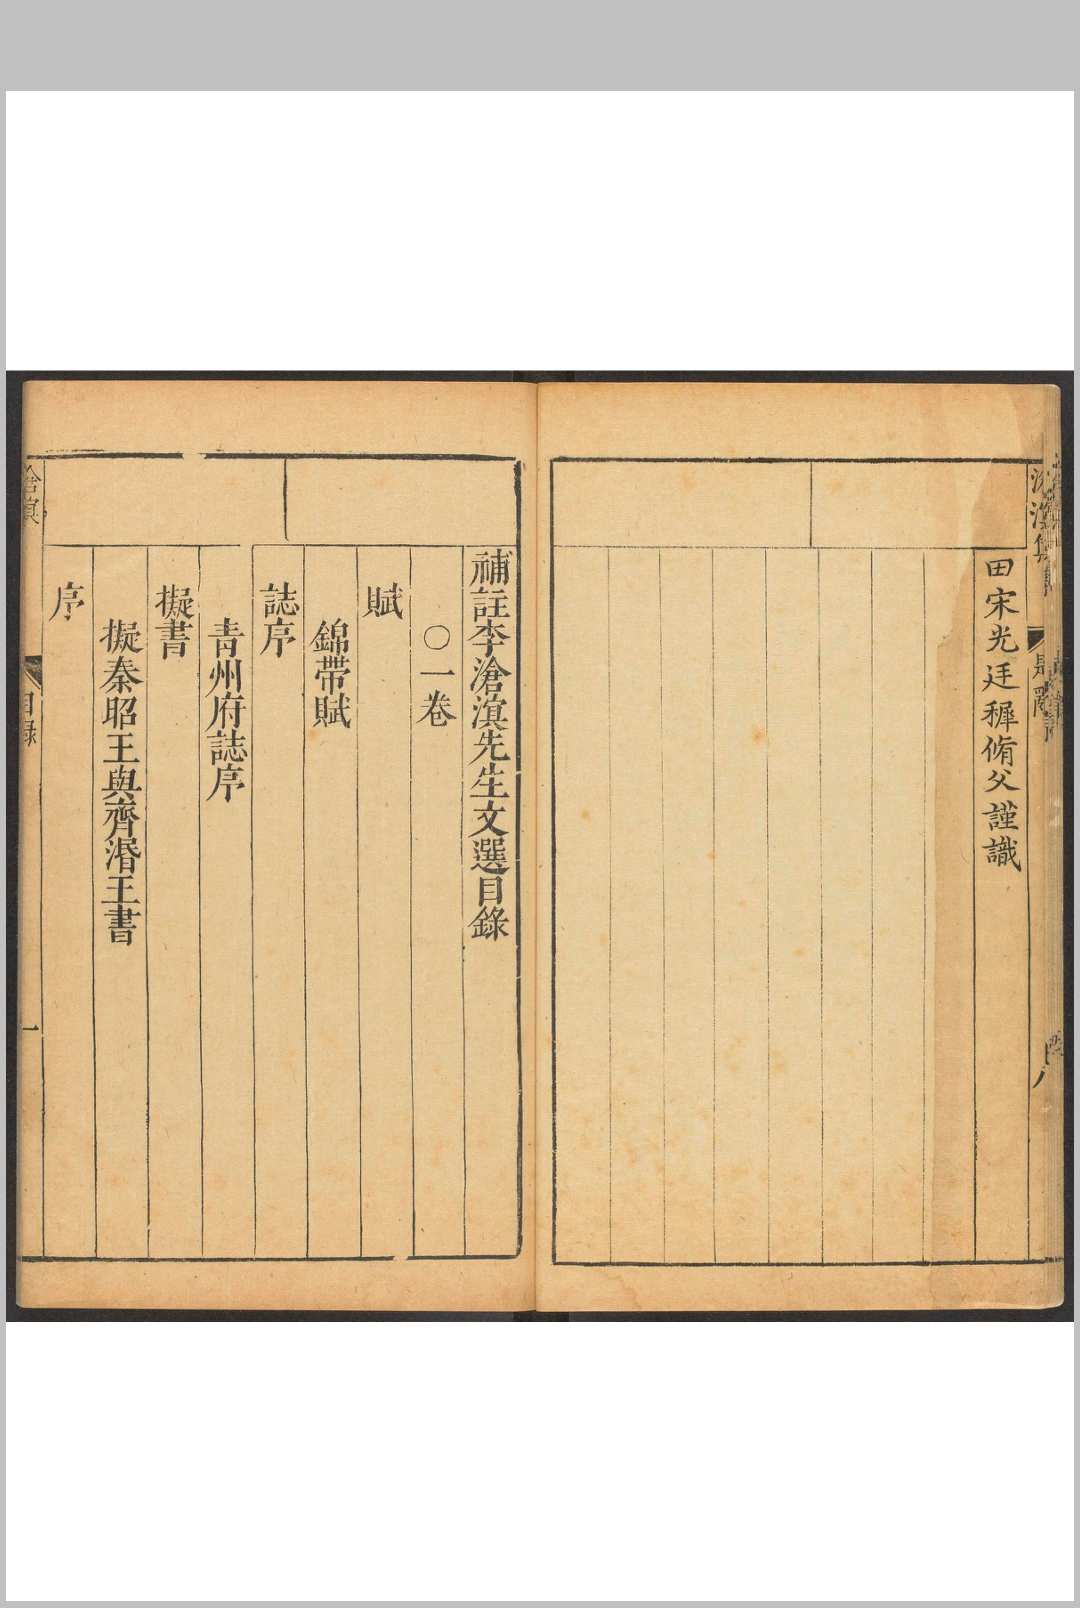 田宋光廷穉脩父謹識
補註李滄溟先生文選目錄
〇一卷
賦
錦帶賦
誌序
青州府誌序
擬書
擬秦昭王與齊湣王書
序
目錄
一